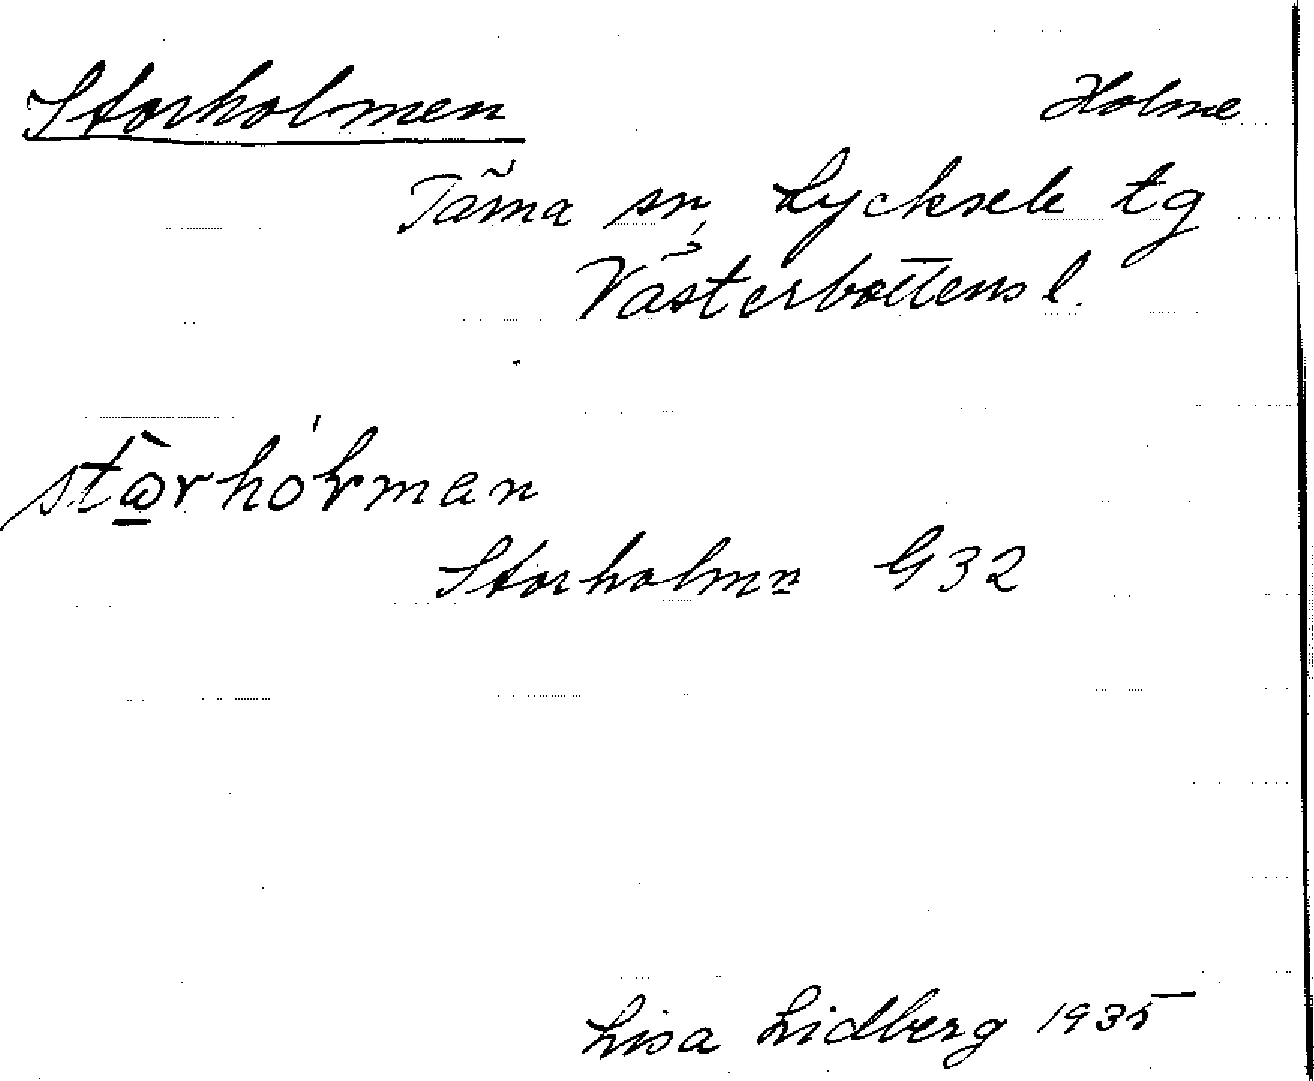 Storholmen
Holme
Tärna sn, Lycksele tg
Västerbottens l.
stòrhólman
Storholmn G32
Lisa Lidberg 1935